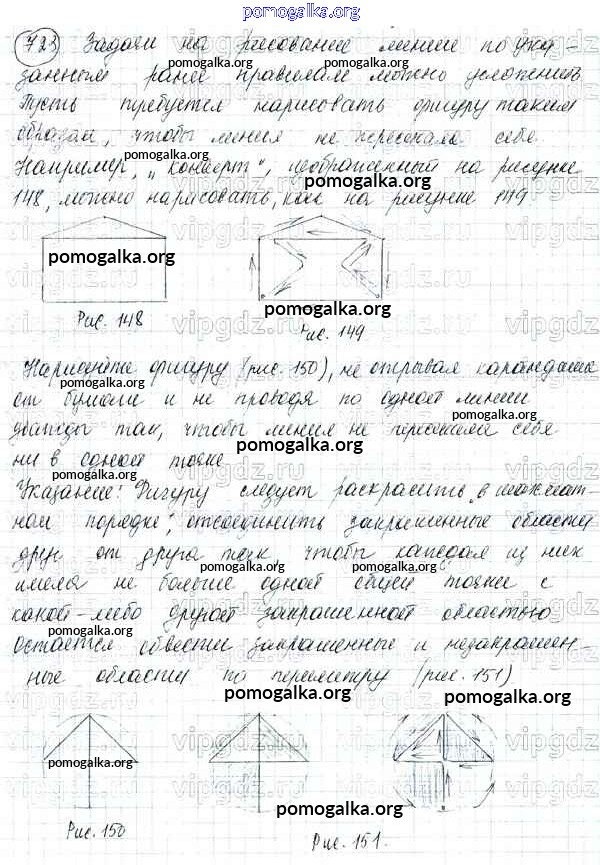 pomogalka.org
723 Задачи на рисование линие по ука-
занным ранее правилам можно усложнить
Пусть требуется нарисовать фигуру таким
образом, чтобы линия не пересекала себе.
Например, „конверт", изображенный на рисунке
148, можно нарисовать, как на рисунке 149
pomogalka.org
Рис. 148
pomogalka.org
Рис. 149
Нарисуйте фигуру (рис. 150), не отрывая карандаша
от бумаги и не проводя по одной линии
дважды так, чтобы линия не пересекала себя
ни в одной точке
Указание: Фигуру следует раскрасить „в шахмат-
ном порядке", отсоединить закрашенные области
друг от друга так чтобы каждая из них
имела не больше одной общей точке с
какой-либо другой закрашенной областью
Остается обвести закрашенные и незакрашен-
ные области по периметру (рис. 151)
pomogalka.org
pomogalka.org
Рис. 150
Рис. 151.